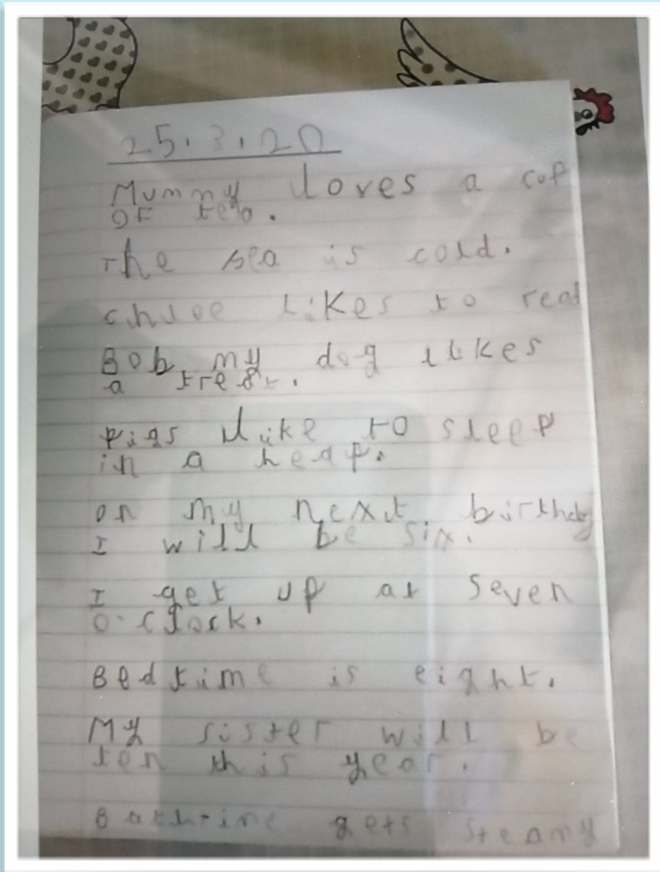 25.3.20
Mummy loves a cup
OF tea.
The sea is cold.
chloe likes to read
Bob my dog likes
a treat.
Pigs like to sleep
in a heap.
on my next birthday
I will be six.
I get up at seven
o'clock.
Bedtime is eight.
My sister will be
ten this year.
Bathtime gets steamy